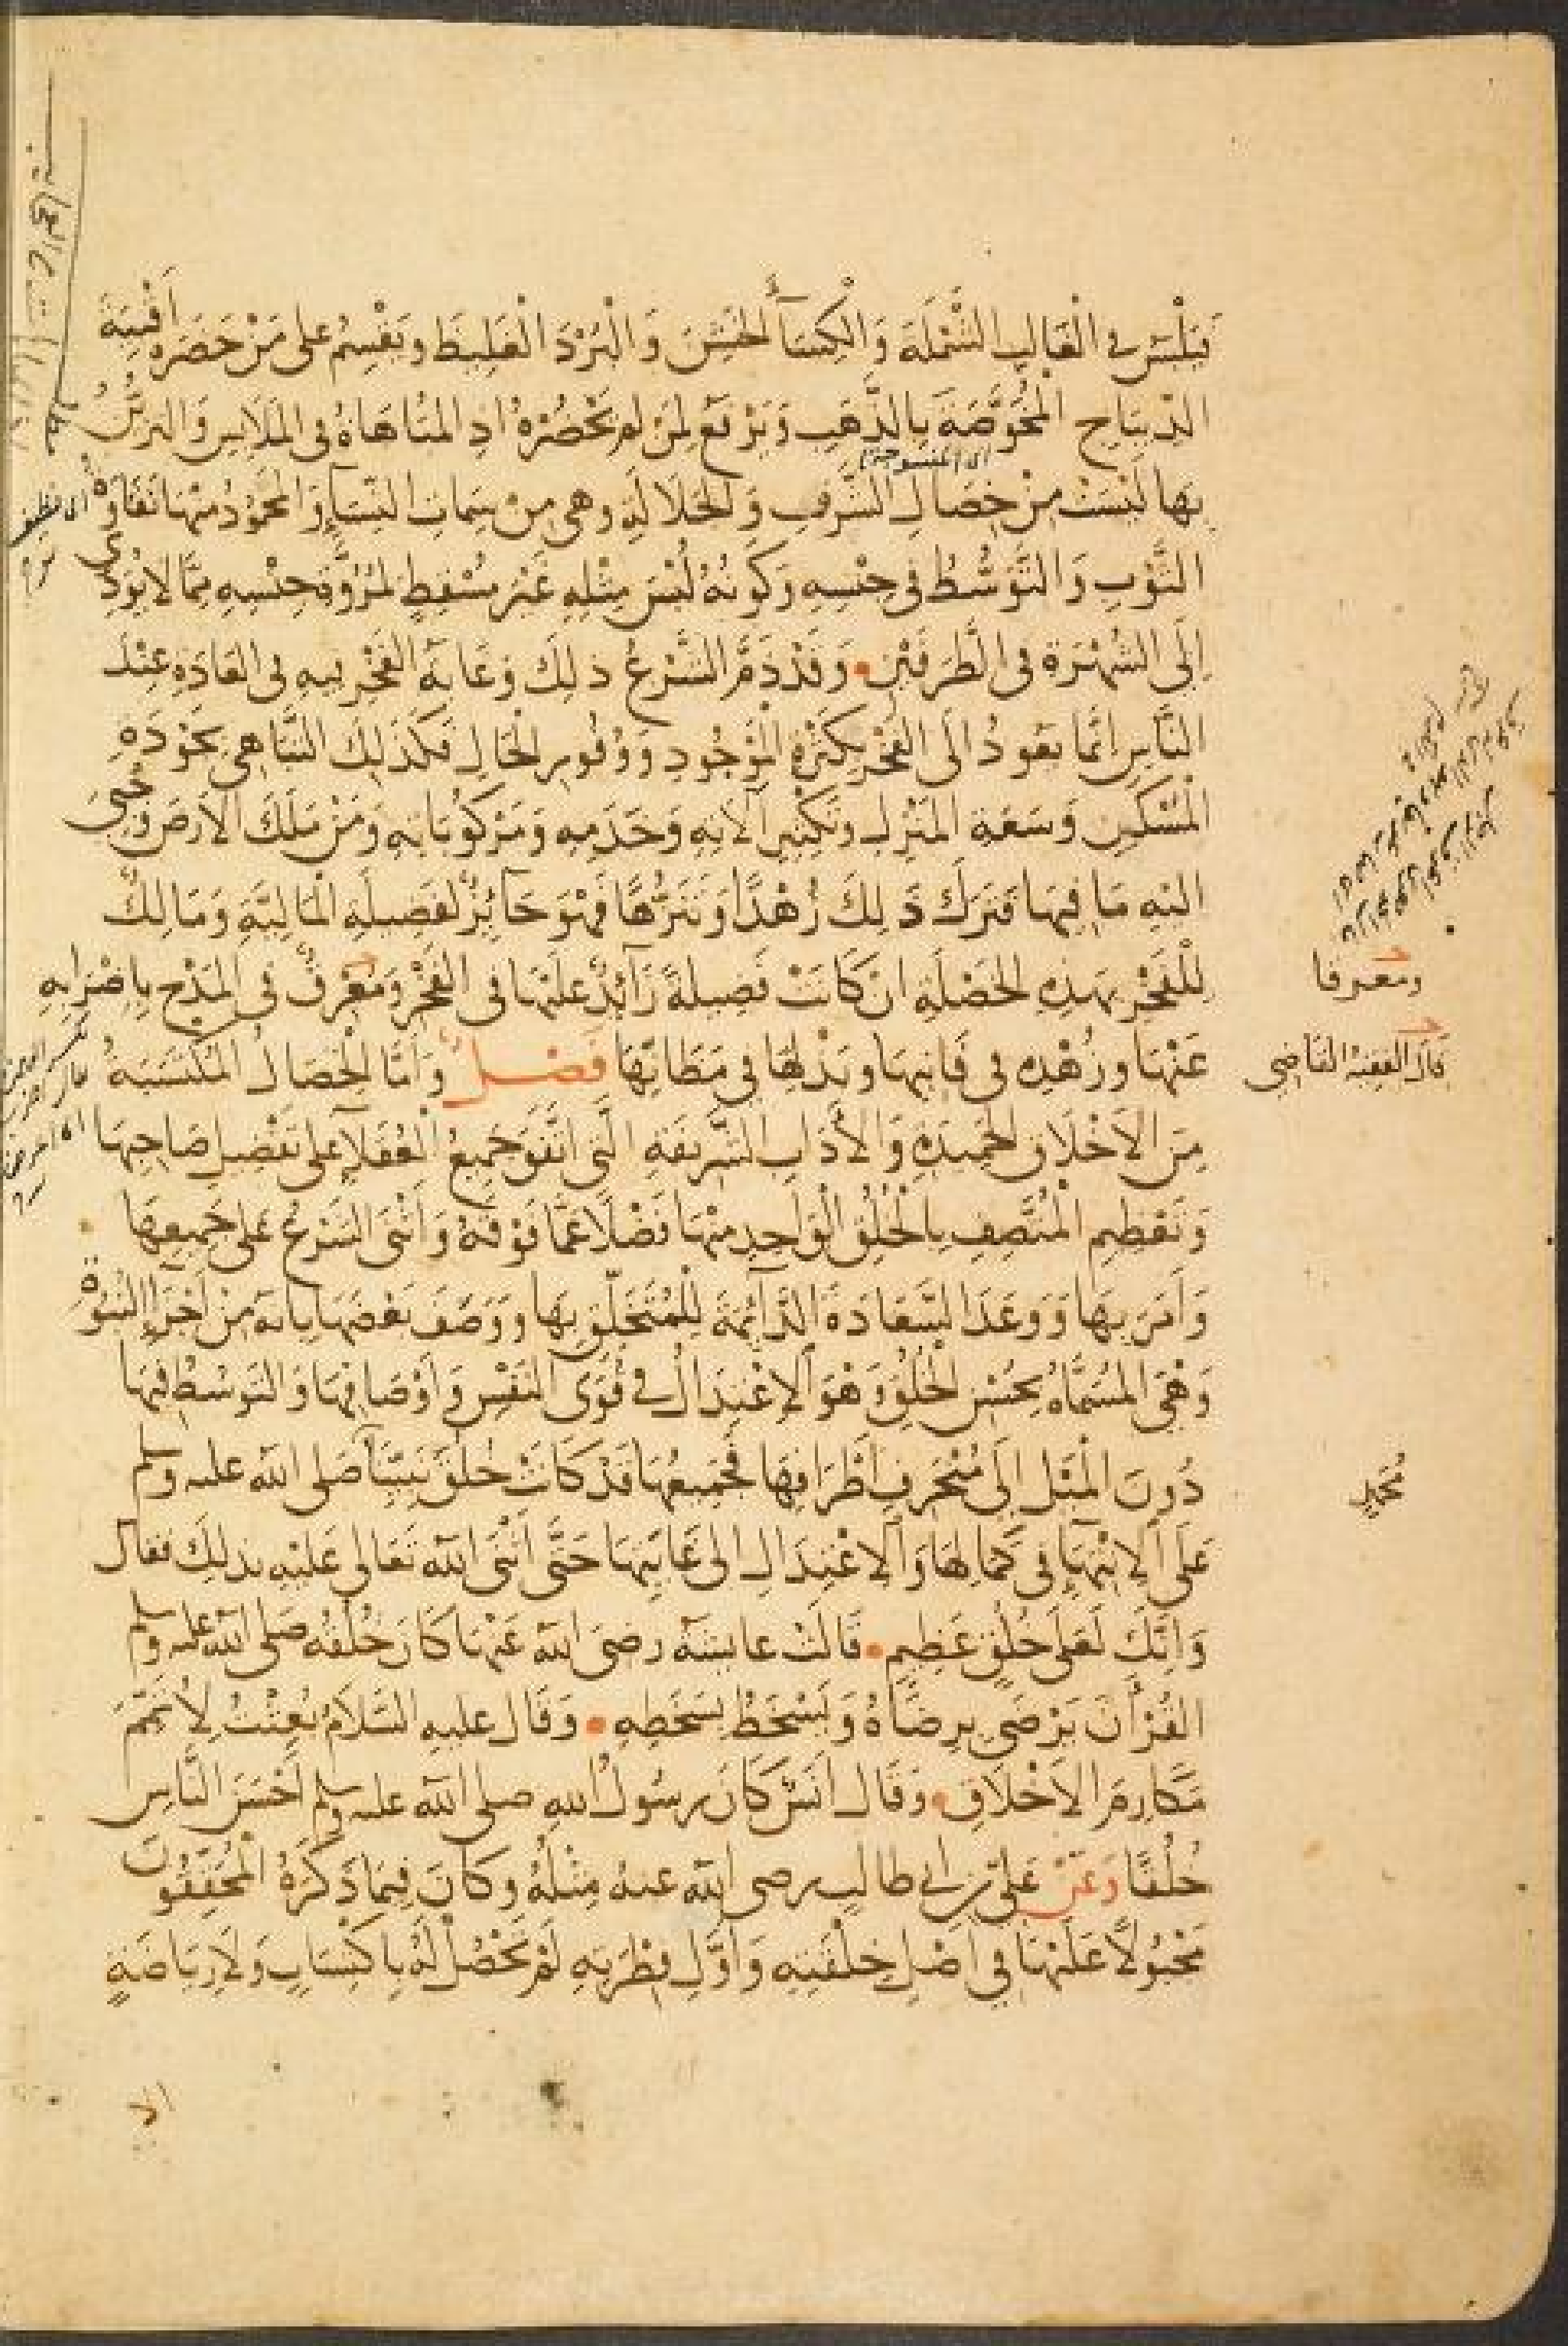 فَيَلْبَسُ في الْغَالِبِ الشَّمْلَةَ وَالْكِسَآءَ الخَشِنَ وَالْبُرْدَ الْغَلِيظَ وَيَقْسِمُ على مَنْ حَضَرَهُ أَقْبِيَةَ
الدِّيبَاجِ الْمُخَوَّصَةَ بِالذَّهَبِ وَيَرْفَعُ لِمَنْ لَمْ يَحْضُرْهُ اذِ المُبَاهَاةُ فى المَلَابِسِ وَالتزيُّنُ
اى المنسوجة
بِهَا لَيْسَتْ مِنْ خِصَالِ الشَّرَفِ وَالْجَلَالَةِ وهى مِنْ سِمَاتِ النِّسَآءِ وَالمَحْمُودُ مِنْهَا نَقَاوَةُ
الثَّوْبِ وَالتَّوَسُّطُ فى جِنْسِهِ وَكَوْنُهُ لُبْسَ مِثْلِهِ غَيْرَ مُسْقِطٍ لمُرُوَّةِ جِنْسِهِ مِمَّا لا يُؤدّى
اِلَى الشُّهْرَةِ فى الطَّرَفَيْنِ • وَقَدْ ذَمَّ الشَّرْعُ ذلِكَ وَغَايَةُ الفَخْرِ فِيهِ فى العَادَةِ عِنْدَ
النَّاسِ انَّمَا يَعُودُ الَى الفَخْرِ بِكَثْرَةِ المَوْجُودِ وَوُفُورِ الْحَالِ فَكَذَلِكَ التَّبَاهِى بِجَوْدَةِ
الْمَسْكَنِ وَسَعَةِ المَنْزِلِ وَتَكْثِيرِ آلَاتِهِ وَخَدَمِهِ وَمَرْكُوبَاتِهِ وَمَنْ مَلَكَ الأَرْضَ وَجُبِىَ
الَيْهِ مَا فِيهَا فَتَرَكَ ذَلِكَ زُهْدًا وَتَنَزُّهًا فَهْوَ حَآئِزٌ لِفَضِيلَةِ الْمَالِيَّةِ وَمَالِكٌ
لِلْفَخْرِ بِهَذِهِ الخَصْلَةِ انْ كَانَتْ فَضِيلَةً زَآئِدٌ عَلَيْهَا فى الفَخْرِ وَمُعْرِقٌ فى الْمَدْحِ بِاِضْرَابِهِ
ومعرفا
عَنْهَا وزُهْدِهِ فى فَانِيهَا وبَذْلِهَا فى مَظَانِّهَا فَصْلٌ وَأَمَّا الْخِصَالُ المُكْتَسَبَةُ
قال الفقيه القاضي
مِنَ الأَخْلَاقِ الحَمِيدَةِ وَالأَدَابِ الشَّرِيفَةِ الَّتِى اتَّفَقَ جَمِيعُ الْعُقَلَآءِ على تَفْضِيلِ صَاحِبِهَا
وَتَعْظِيمِ الْمُتَّصِفِ بِالْخُلُقِ الْوَاحِدِ مِنْهَا فَضْلًا عَمَّا فَوْقَهُ وَأَثْنَى الشَّرْعُ على جَمِيعِهَا
وَأَمَرَ بِهَا وَوَعَدَ السَّعَادَةَ الدَّآئِمَةَ لِلْمُتَخَلِّقِ بِهَا وَوَصَفَ بَعْضَهَا بِاَنَّهُ مِنْ اَجْزَآءِ النُبُوَّةِ
وَهْىَ المُسَمَّاةُ بِحُسْنِ الْخُلُقِ وَهْوَ الإعْتِدَالُ فى قُوَى النَّفْسِ وَأَوْصَافِهَا وَالتَوَسُّطُ فِيهَا
دُونَ الْمَيْلِ اِلَى مُنْحَرِفِ أَطْرَافِهَا فَجَمِيعُهَا قَدْ كَانَتْ خُلُقَ نَبِيِّنَا صَلى الله عليه وسلم
عَلَى الانْتِهَآءِ فى كَمَالِهَا وَالاعْتِدَالِ الى غَايَتِهَا حَتَّى أَثْنَى الله تَعَالَى عَلَيْهِ بِذلِكَ فقال
وَانَّكَ لَعَلَى خُلُقٍ عَظِيمٍ • قَالَتْ عايشة رضىَ الله عَنْهَا كَانَ خُلُقُهُ صَلى الله عليه وسلم
القُرْآنَ يَرْضَى بِرِضَاهُ وَيَسْخَطُ بِسَخَطِهِ • وَقَال عليهِ السَّلَامُ بُعِثْتُ لِأُتَمِّمَ
مَكَارِمَ الأَخْلَاقِ • وَقَالَ انَسٌ كَانَ رسُولُ اللهِ صلى الله عليه وسلم أَحْسَنَ النَّاسِ
خُلُقًا وَعَنْ عَلىّ بن ابى طالبٍ رضى الله عنهُ مِثْلُهُ وَكَانَ فِيمَا ذَكَرَهُ الْمُحَقِّقُونَ
مَجْبُولًا عَلَيْهَا فى أَصْلِ خِلْقَتِهِ وَأَوَّلِ فِطْرَتِهِ لَمْ تَحْصُلْ لَهُ بِاكْتِسَابٍ وَلَا رِيَاضَةٍ
الا